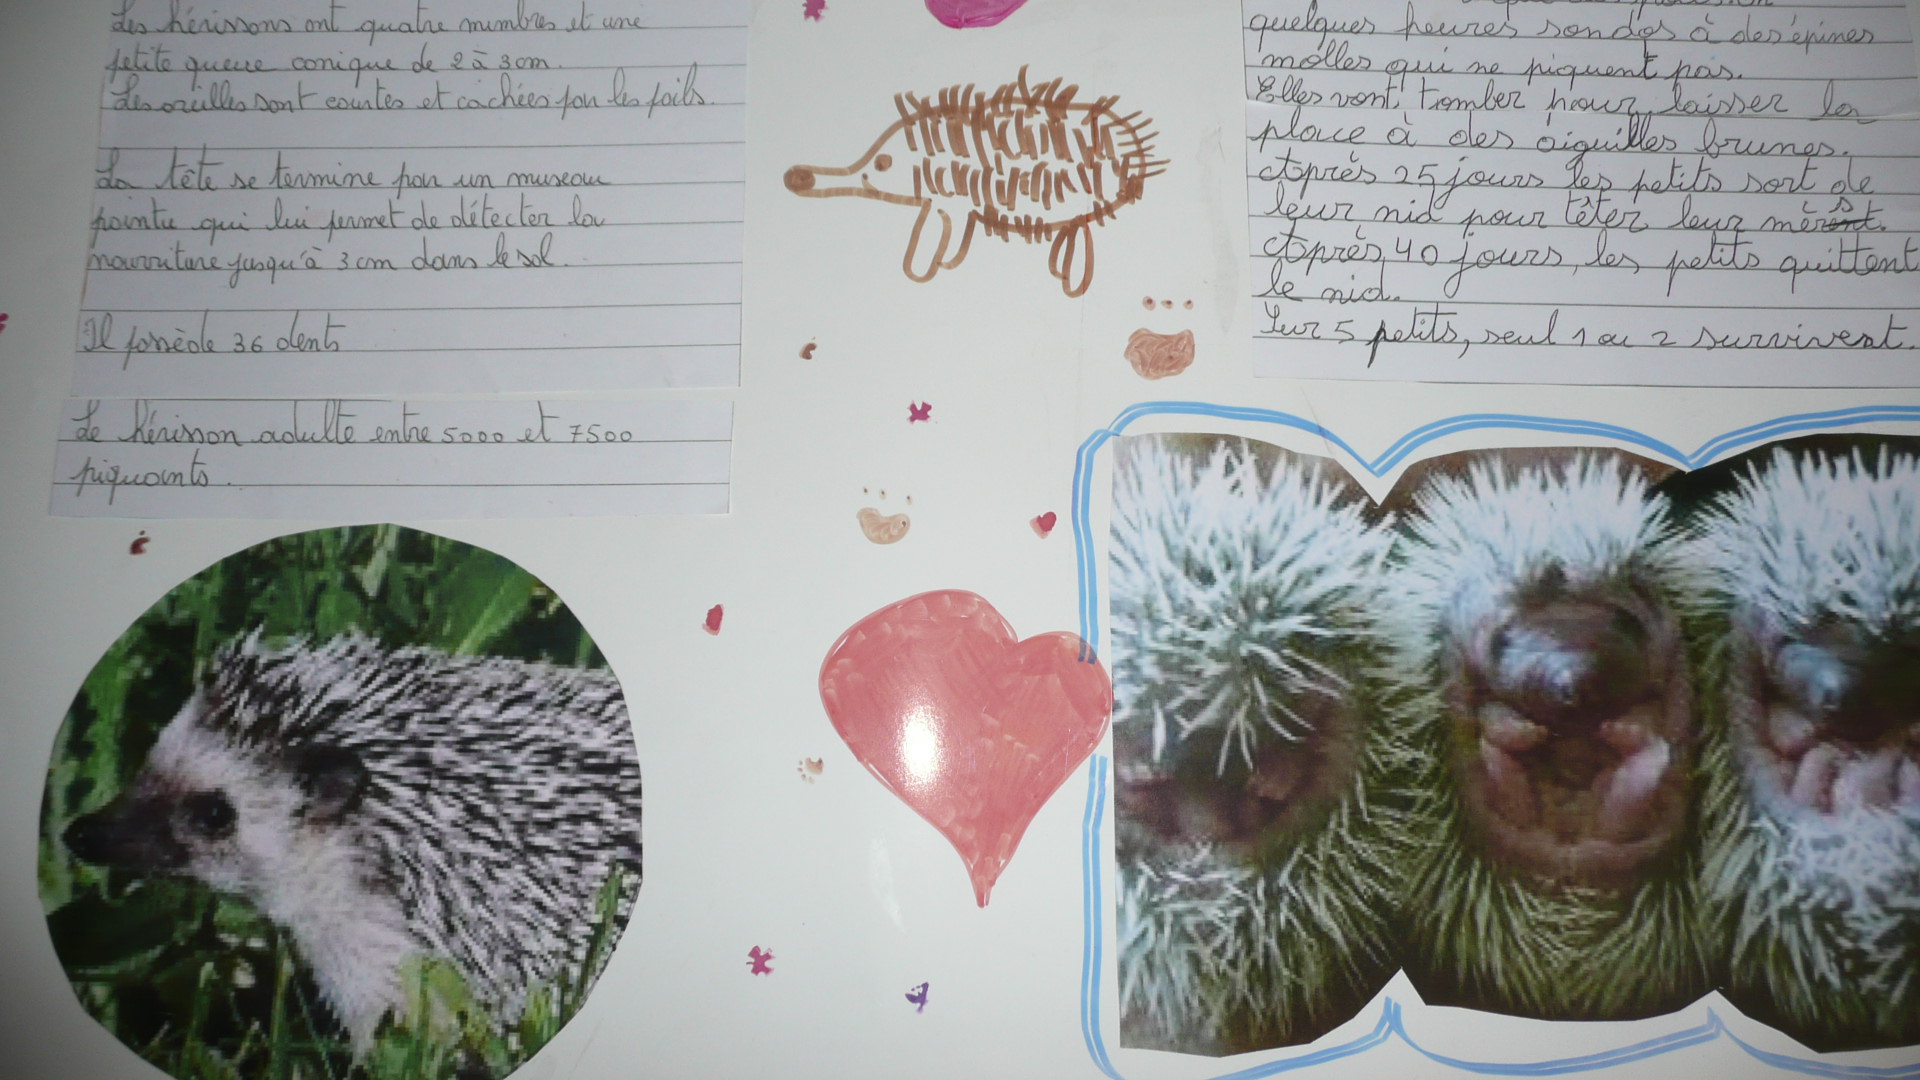 Les hérissons ont quatre membres et une
petite queue conique de 2 à 3 cm.
Les oreilles sont courtes et cachées par les poils.
La tête se termine par un museau
pointu qui lui permet de détecter la
nourriture jusqu'à 3 cm dans le sol.
Il possède 36 dents
Le hérisson adulte entre 5000 et 7500
piquants.
quelques heures son dos à des épines
molles qui ne piquent pas.
Elles vont, tomber pour laisser la
place à des aiguilles brunes.
Après 25 jours les petits sort de
leur nid pour têter leur mères.
Après, 40 jours, les petits quittent
le nid.
Sur 5 petits, seul 1 ou 2 survivent.